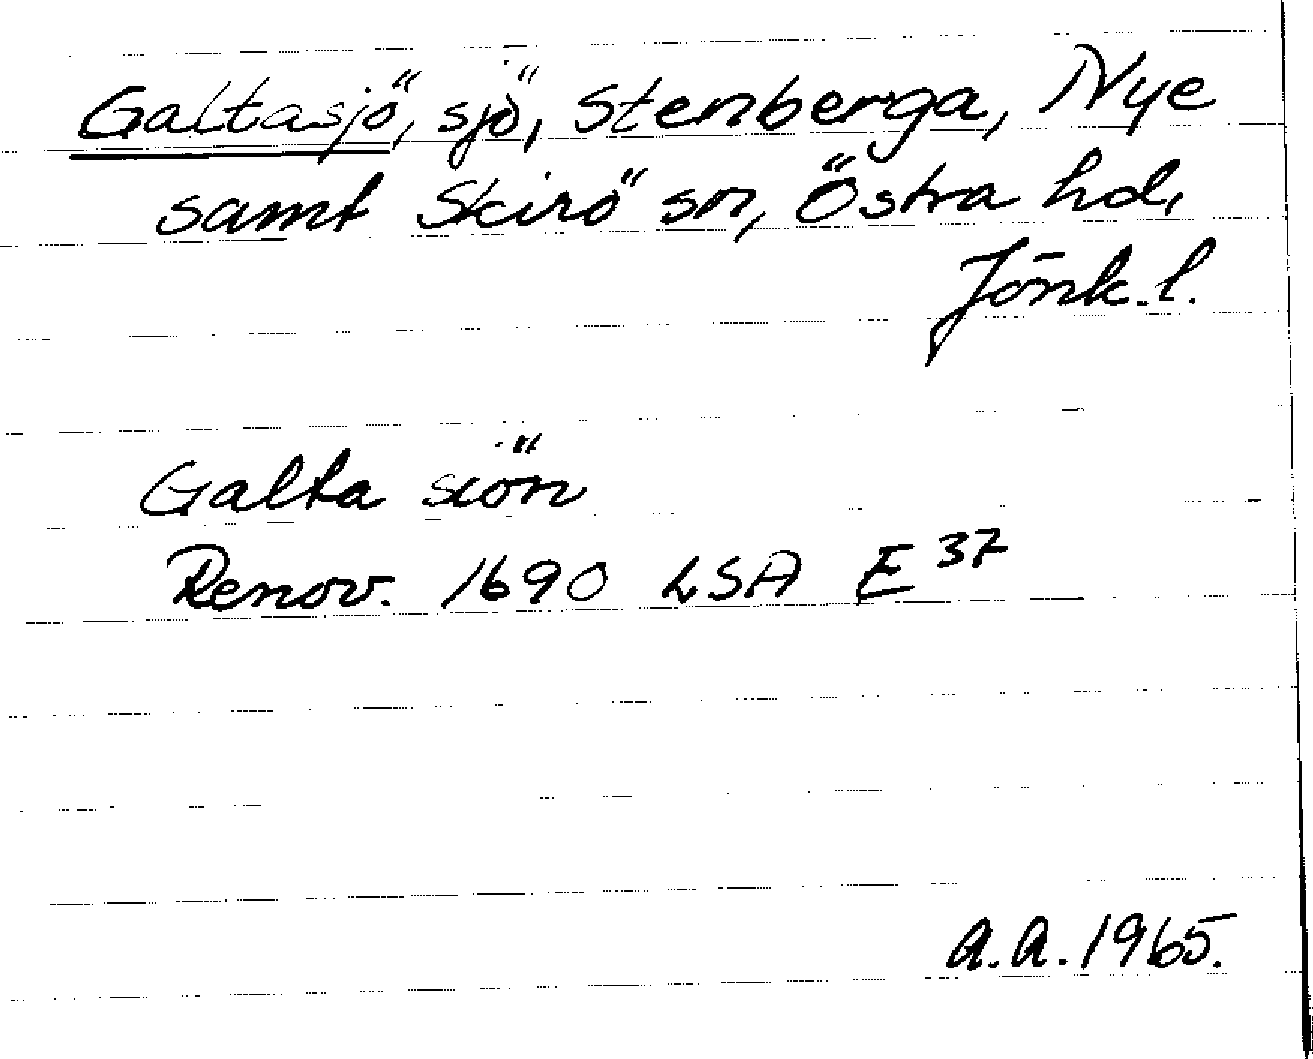 Galtasjö, sjö, Stenberga, Nye
samt Skirö sn, Östra hd,
Jönk. l.
Galta siön
Renov. 1690 LSA E 37
A.A. 1965.